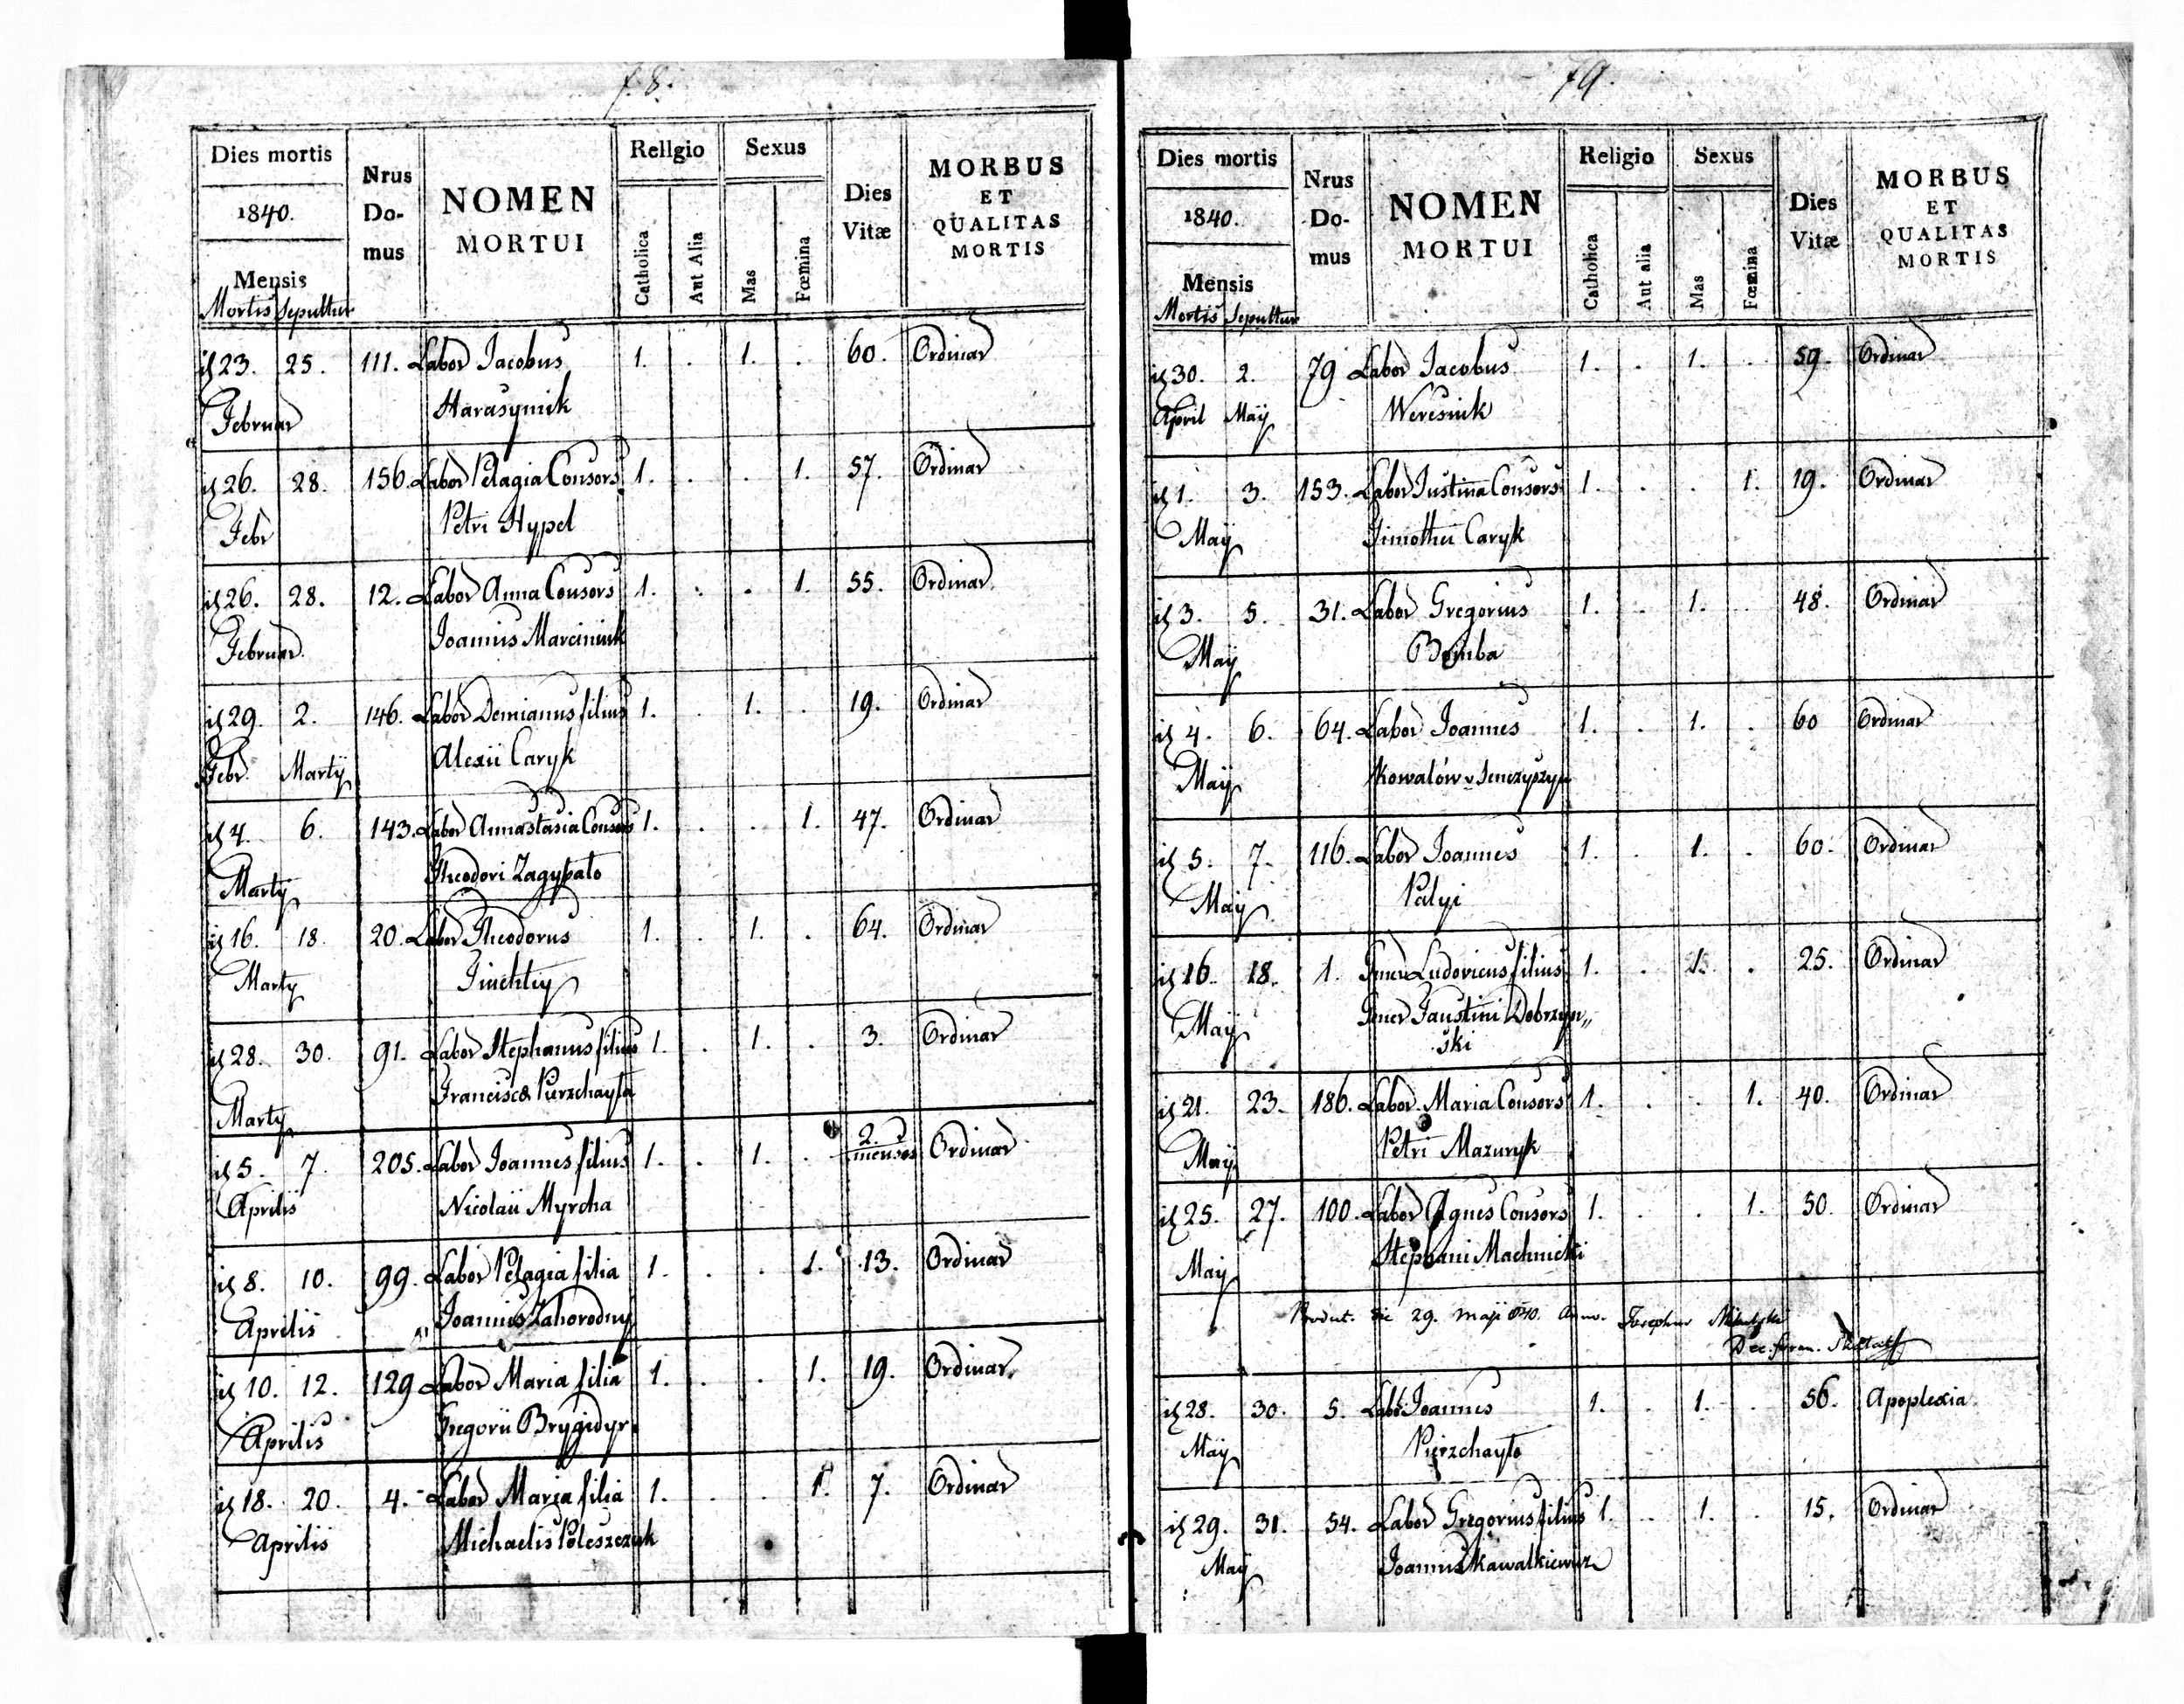 78.
Dies mortis
1840.
Mensis
Mortis Sepultur
Nrus Do- mus
NOMEN
MORTUI
Religio
Catholica
Aut Alia
Sexus
Mas
Fœmina
Dies
Vitæ
MORBUS
ET
QUALITAS
MORTIS
23. 25. 111. Labor Jacobus 1. . 1. . 60. Ordinar
Februar Harasymik
26. 28. 156. Labor Pelagia Consors 1. . . 1. 57. Ordinar
Febr Petri Hypel
26. 28. 12. Labor Anna Consors 1. . . 1. 55. Ordinar
Februar Joannis Marciniuk
29. 2. 146. Labor Demianus filius 1. . 1. . 19. Ordinar
Febr. Martij Alexii Caryk
4. 6. 143. Labor Annastasia Consors 1. . . 1. 47. Ordinar
Martij Theodori
16. 18. 20. Labor Theodorus 1. . 1. . 64. Ordinar
Martij
28. 30. 91. Labor Stephanus filius 1. . 1. . 3. Ordinar
Martij Francisci
5. 7. 205. Labor Joannes filius 1. . 1. . 2. menses Ordinar
Aprilis Nicolaii Myrcha
8. 10. 99. Labor Pelagia filia 1. . . 1. 13. Ordinar
Aprilis Joannis Zahorodny
10. 12. 129 Labor Maria filia 1. . . 1. 19. Ordinar
Aprilis Gregorii Brygidyr
18. 20. 4. Labor Maria filia 1. . . 1. 7. Ordinar
Aprilis Michaelis Poleszczuk
79.
Dies mortis
1840.
Mensis
Mortis Sepultur
Nrus Do- mus
NOMEN
MORTUI
Religio
Catholica
Aut alia
Sexus
Mas
Fœmina
Dies
Vitæ
MORBUS
ET
QUALITAS
MORTIS
30. 2. 79 Labor Jacobus 1. . 1. . 59. Ordinar
April Maij Weresiuk
1. 3. 153. Labor Justina Consors 1. . . 1. 19. Ordinar
Maij Timothei Caryk
3. 5. 31. Labor Gregorius 1. . 1. . 48. Ordinar
Maij Bomba
4. 6. 64. Labor Joannes 1. . 1. . 60 Ordinar
Maij Kowalów v Senczyszyn
5. 7. 116. Labor Joannes 1. . 1. . 60. Ordinar
Maij Palyi
16. 18. 1. Gener Ludovicus filius 1. . 1. . 25. Ordinar
Maij Gener Faustini Dobrzyn„
ski
21. 23. 186. Labor Maria Consors 1. . . 1. 40. Ordinar
Maij Petri Mazuryk
25. 27. 100. Labor Agnes Consors 1. . . 1. 50. Ordinar
Maij Stephani Machnicki
Product. die 29. Maji 840. Josephus
28. 30. 5. Labor Joannes 1. . 1. . 56. Apoplexia
Maij Pierzchayło
29. 31. 54. Labor Gregorius filius 1. . 1. . 15. Ordinar
Maij Joannis Kawalkiewicz